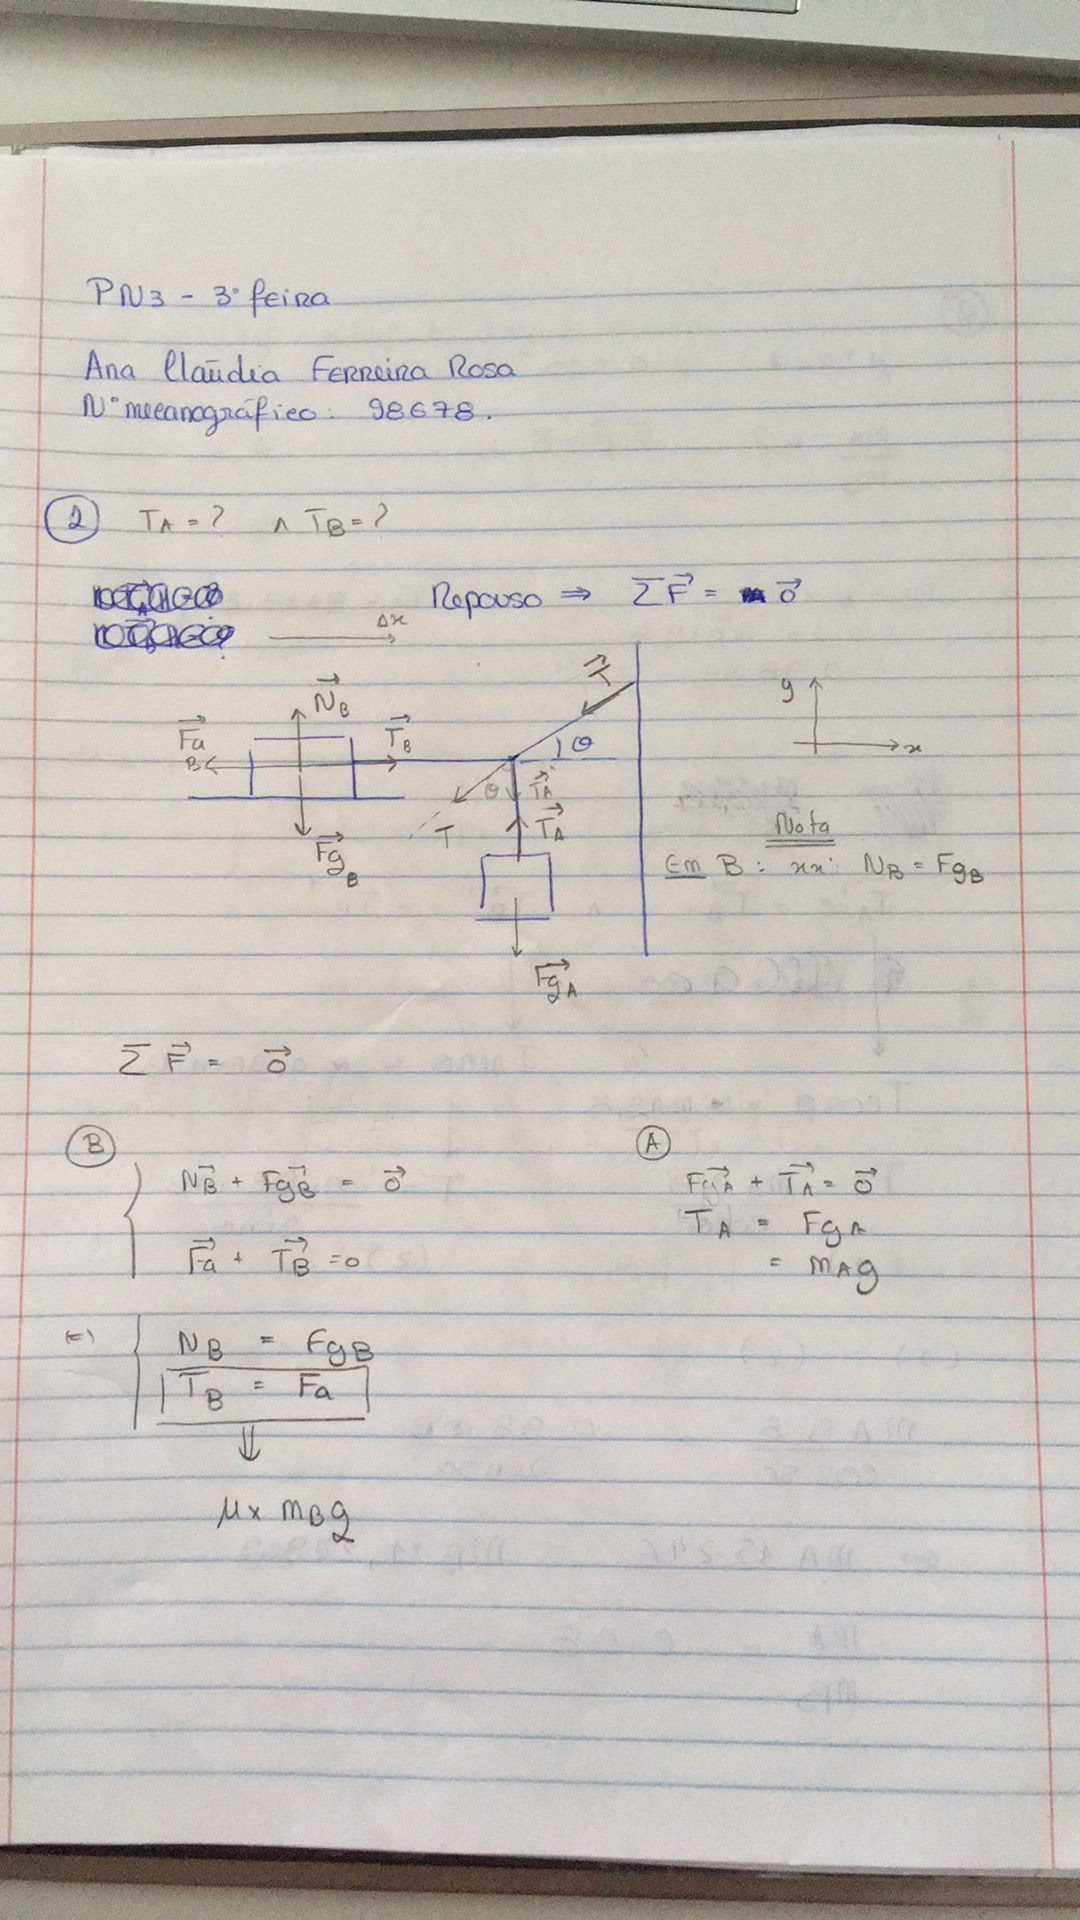 PN3 - 3ª feira
Ana Claúdia Ferreira Rosa
Nº mecanográfico: 98678.
2 T_A = ? ∧ T_B = ?
Repouso ⇒ Σ F⃗ = 0⃗
Δx
N⃗_B
F⃗a
B
T⃗_B
T⃗
θ
θ
T⃗_A
T
T⃗_A
F⃗g_B
F⃗g_A
y
x
Nota
Em B: xx: N_B = Fg_B
Σ F⃗ = 0⃗
B
N⃗_B + F⃗g_B = 0⃗
F⃗a + T⃗_B = 0
(=) N_B = Fg_B
T_B = Fa
⇓
μ x m_B g
A
F⃗g_A + T⃗_A = 0⃗
T_A = Fg_A
= m_A g